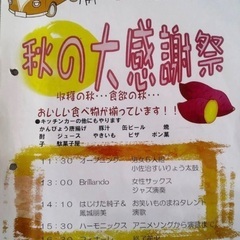 秋の大感謝祭
収穫の秋・・・食欲の秋・・・
おいしい食べ物が揃っています!!
●キッチンカーの他にもやります
かんぴょう唐揚げ 豚汁 缶ビール 焼
酎 ジュース やきいも ピザ ポン菓
子 駄菓子屋
11:30 オープニング
小佐治すいりょう太鼓
13:00 Brillando 女性サックス
ジャズ演奏
14:10 はじけた純子& お笑いものまねタレント
鳳城朋美 演歌
15:30 ハーモニックス アニメソングから演歌